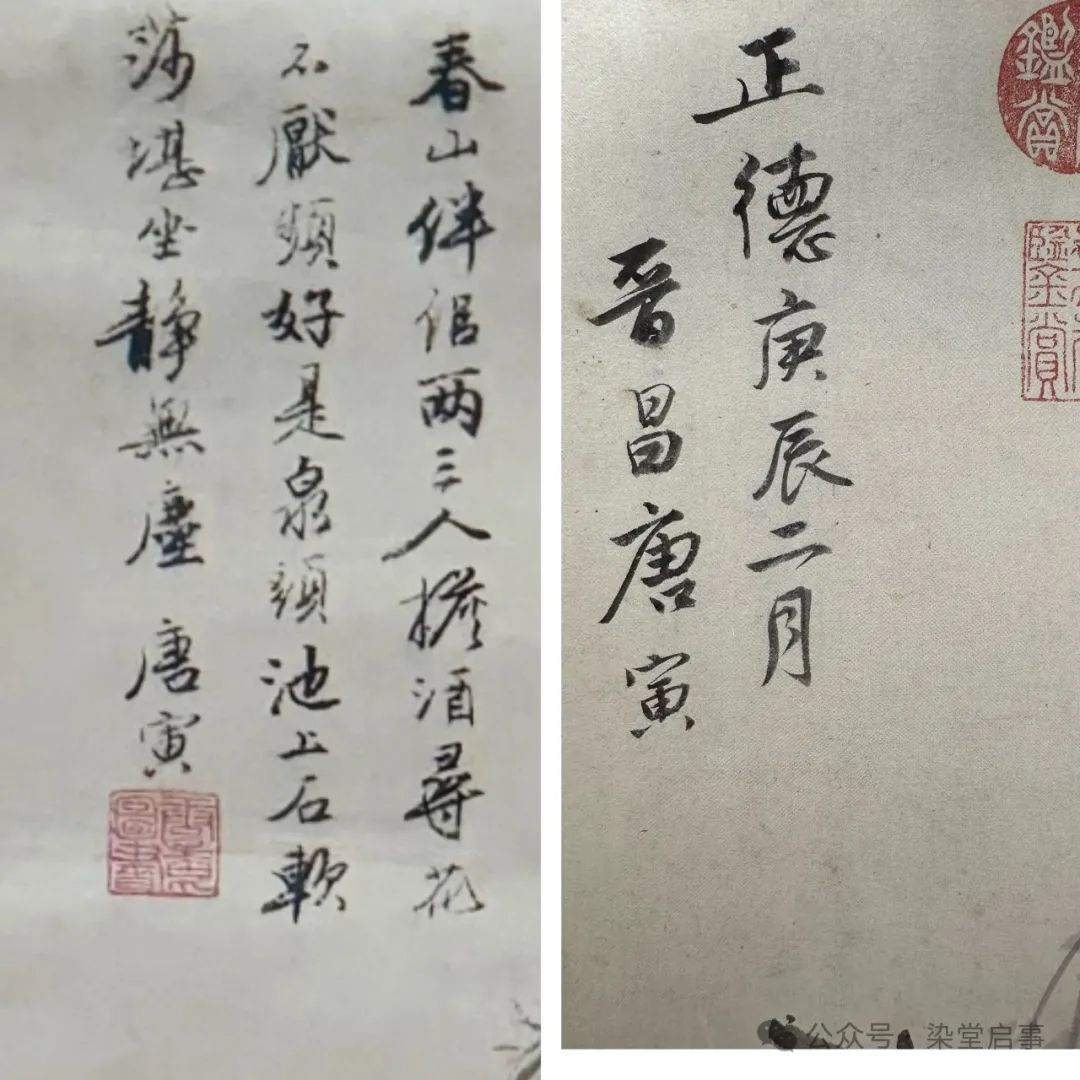 春山伴侣两三人擔酒尋花
不厭頻好是泉頭池上石軟
莎堪坐靜無塵 唐寅
正德庚辰二月
晋昌唐寅
鑑賞
公众号 染堂启事